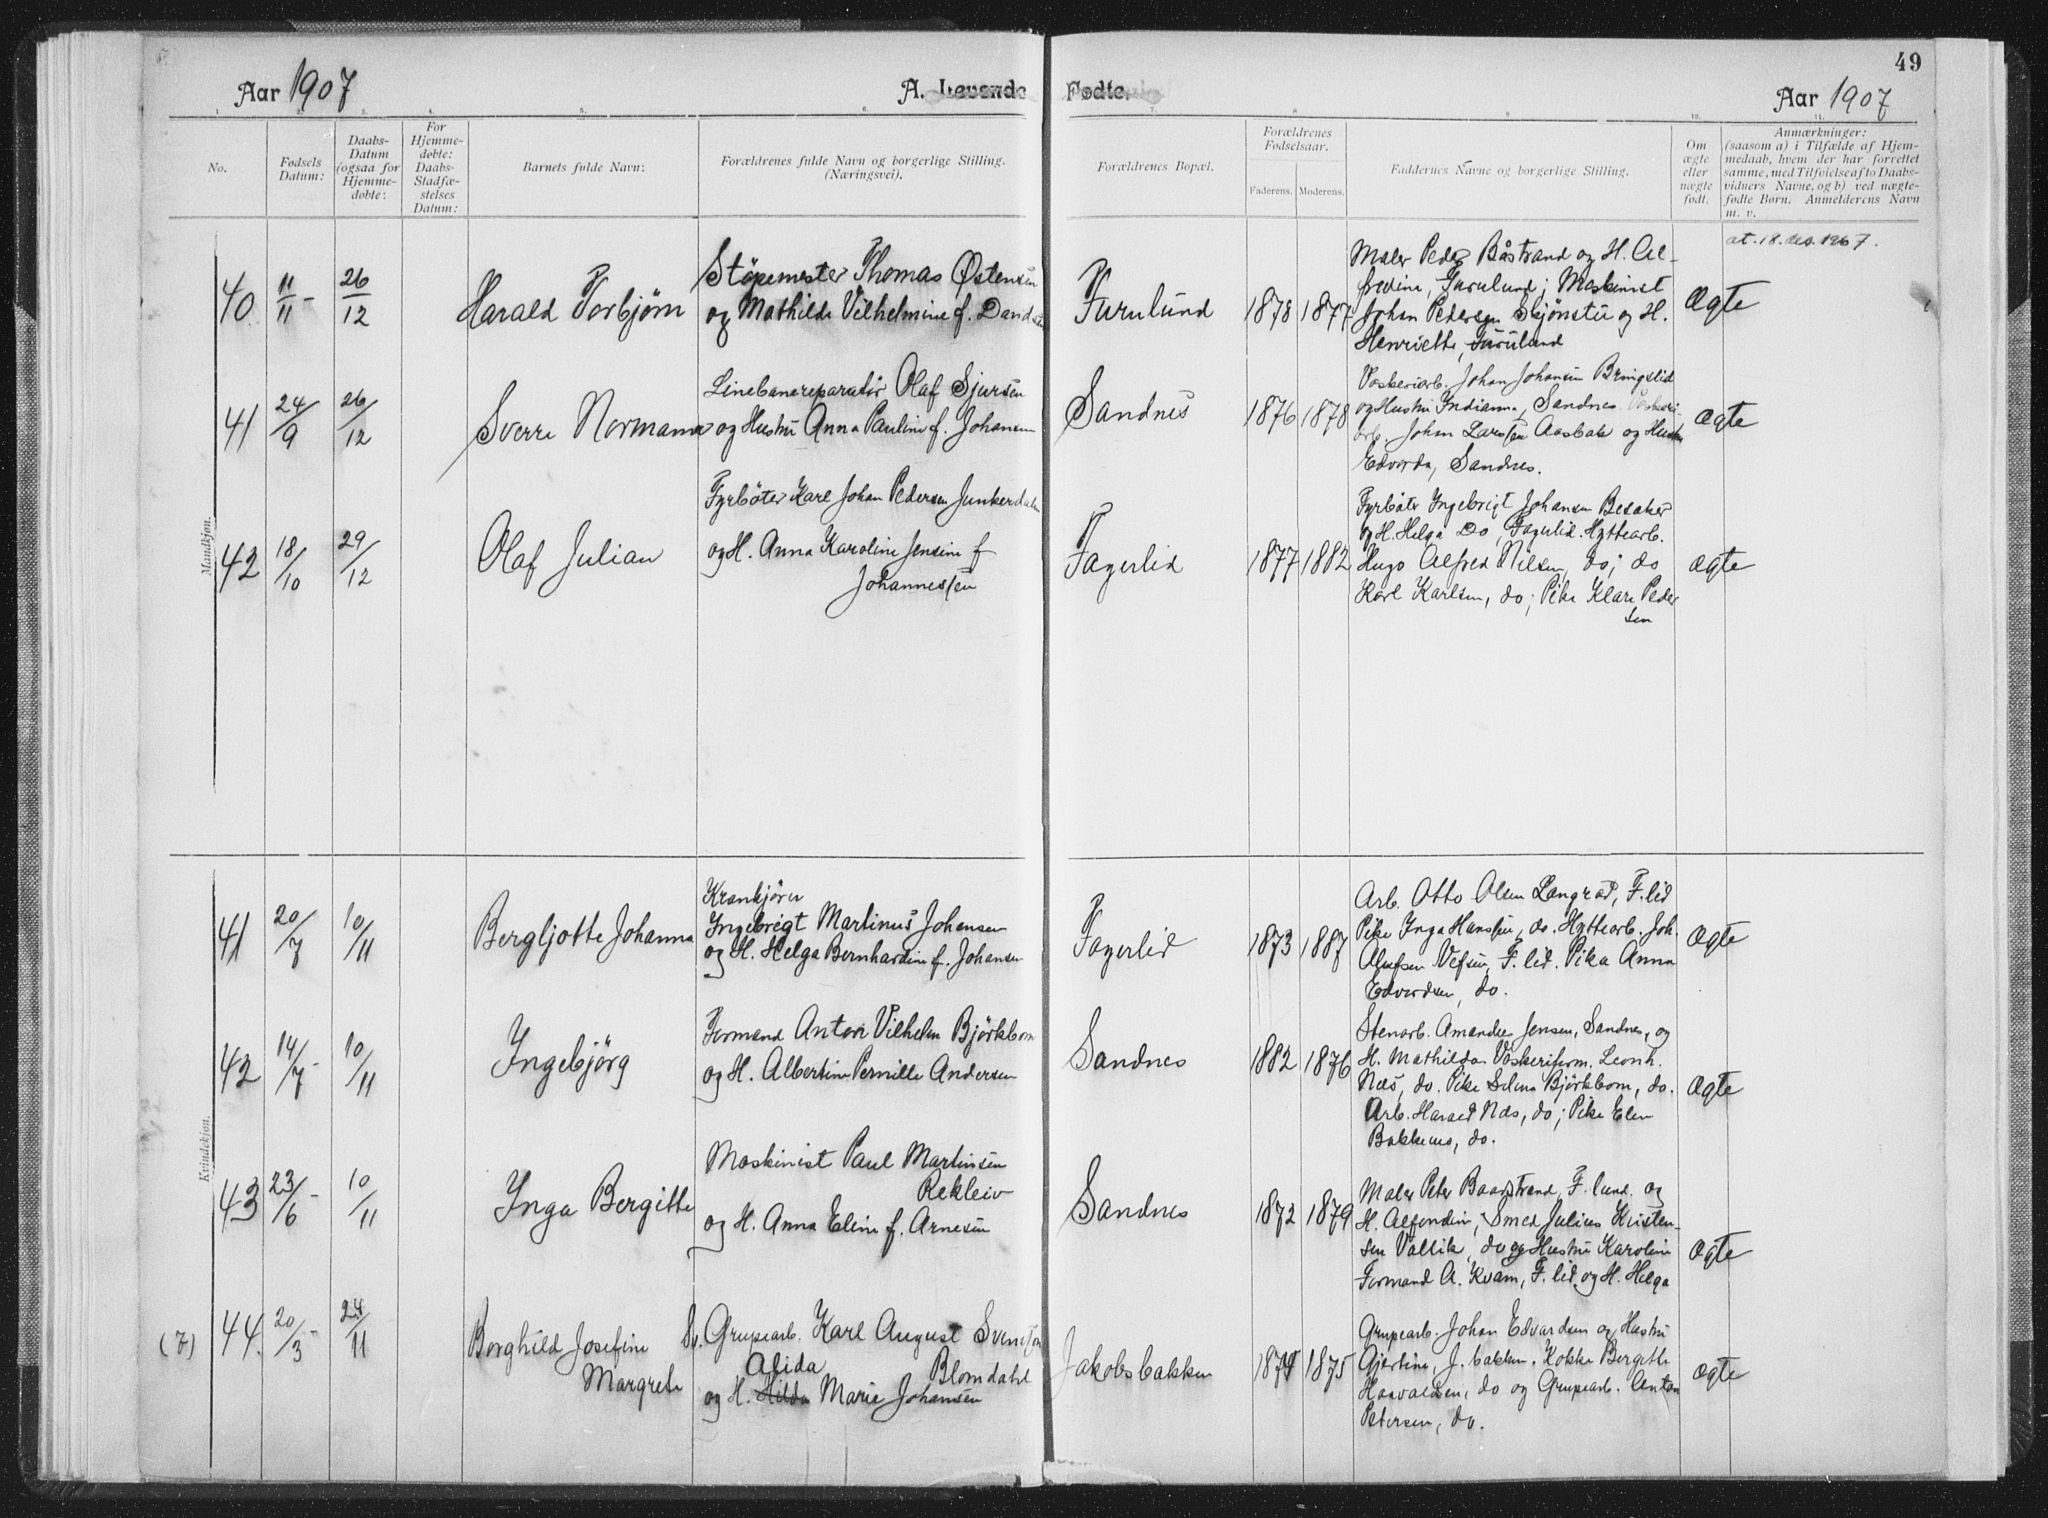 49
Aar 1907
A. Levende Fødte.
Aar 1907
1. 2. 3. 4. 5. 6. 7. 8. 9. 10. 11.
No.
Fødsels
Datum:
Daabs-
Datum
(ogsaa for
Hjemme-
døbte:
For
Hjemme-
døbte:
Daabs-
Stadfæ-
stelses
Datum:
Barnets fulde Navn:
Forældrenes fulde Navn og borgerlige Stilling.
(Næringsvei).
Forældrenes Bopæl.
Forældrenes
Fødselsaar.
Faderens. Moderens.
Faddernes Navne og borgerlige Stilling.
Om
ægte
eller
uægte
født.
Anmærkninger:
(saasom a) i Tilfælde af Hjem-
medaab, hvem der har forrettet
samme, med Tilføielse af to Daabs-
vidners Navne, og b) ved uægte-
fødte Børn. Anmelderens Navn
m. v.
Mandkjøn.
40 11/11 - 26/12
Harald Torbjørn
Støpemester Thomas Østensen
og Mathilde Vilhelmine f. Davidsen
Furulund
1878 1877
Maler Peder Båstrand og H. Al-
fredine, Furulund; Maskinist
Johan Pedersen Skjønstu og H.
Henriette, Furulund
Ægte
at. 18. des. 1967.
41 24/9 26/12
Sverre Normann
Linebanereparatør Olaf Sjursen
og Hustru Anna Pauline f. Johansen
Sandnes
1876 1878
Vaskeriarb. Johan Johansen Bringslid
og Hustru Indianna, Sandnes. Vaskeri-
arb. Johan Larssen Aasbak og Hustru
Edvarda, Sandnes.
Ægte
42 18/10 29/12
Olaf Julian
Fyrbøter Karl Johan Pedersen Junkerdalen
og H. Anna Karoline Jensine f
Johannessen
Fagerlid
1877 1882
Fyrbøter Ingebrigt Johansen Besaker
og H. Helga Do, Fagerlid. Hyttearb.
Hugo Alfred Nilsen, do; do
Karl Karlsen, do; Pike Klara Peder
sen
Ægte
Kvindekjøn.
41 20/7 10/11
Bergljotte Johanna
Krankjører
Ingebrigt Martinus Johansen
og H. Helga Bernhardine f. Johansen
Fagerlid
1873 1887
Arb. Otto Olsen Langrød, F.lid
Pike Inga Hanssen, do. Hyttearb. Joh.
Olufsen Vefsen, F.lid. Pika Anna
Edvardsen, do.
Ægte
42 14/7 - 10/11
Ingebjörg
Formand Anton Vilhelm Björkbom
og H. Albertine Pernille Andersen
Sandnes
1882 1876
Stenarb. Amandus Jensen, Sandnes, og
H. Mathilda. Vaskeriform. Leonh.
Næs, do. Pike Selma Björkbom, do.
Arb. Harald Næs, do; Pike Elen
Bakkemo, do.
Ægte
43 23/6 - 10/11
Inga Bergitte
Maskinist Paul Martinsen
Rekleiv
og H. Anna Eline f. Arnesen
Sandnes
1872 1879
Maler Peter Baardstrand, F.lund. og
H. Alfondine, Smed Julius Kristen-
sen Vallik, do og Hustru Karoline
Formand A. Kvam, F.lid og H. Helga
Ægte
(7) 44. 20/3 - 24/11
Borghild Josefine
Margrete
Sv. Grupearb. Karl August Svenssen
Alida Blomdahl
og H. Hilda Marie Johansen
Jakobsbakken
1874 1875
Grupearb. Johan Edvardsen og Hustru
Gjertine, J.bakken. Kokke Bergette
Haavaldsen, do og Grupearb. Anton
Petersen, do.
Ægte